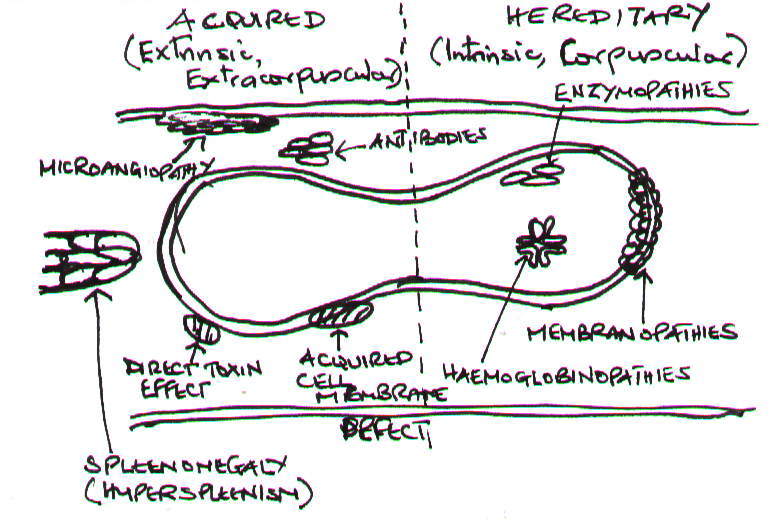 ACQUIRED
(Extrinsic,
Extracorpuscular)
HEREDITARY
(Intrinsic, Corpuscular)
ENZYMOPATHIES
ANTIBODIES
MICROANGIOPATHY
MEMBRANOPATHIES
HAEMOGLOBINOPATHIES
DIRECT TOXIN
EFFECT
ACQUIRED
CELL
MEMBRANE
DEFECT
SPLEENOMEGALY
(HYPERSPLEENISM)